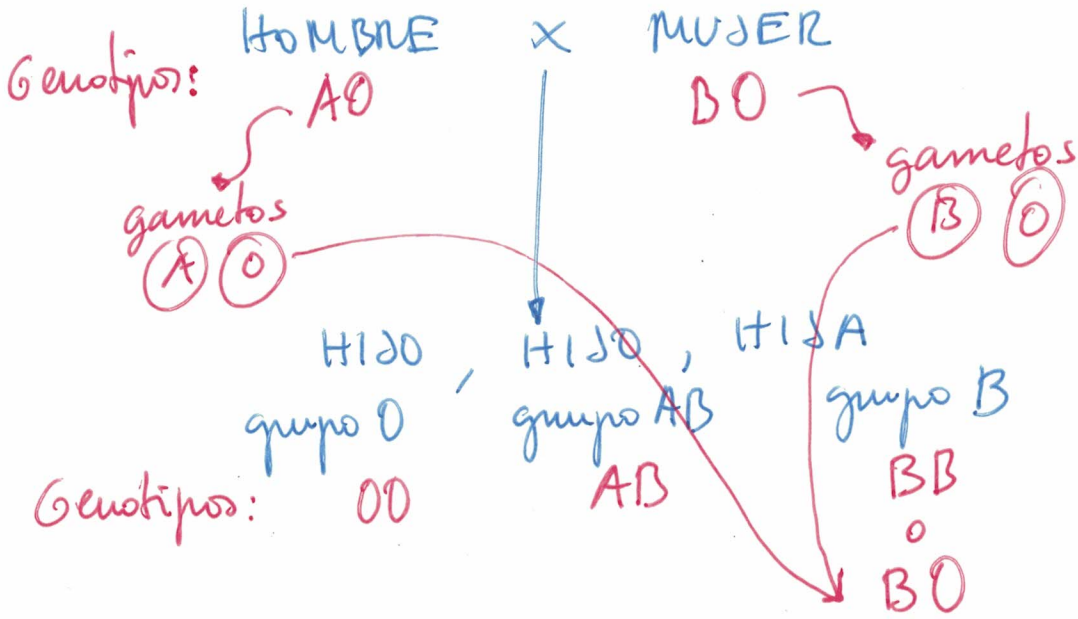 HOMBRE x MUJER
Genotipos: AO BO
gametos
B O
gametos
A O
HIJO , HIJO , HIJA
grupo O grupo AB grupo B
Genotipos: OO AB BB
o
BO